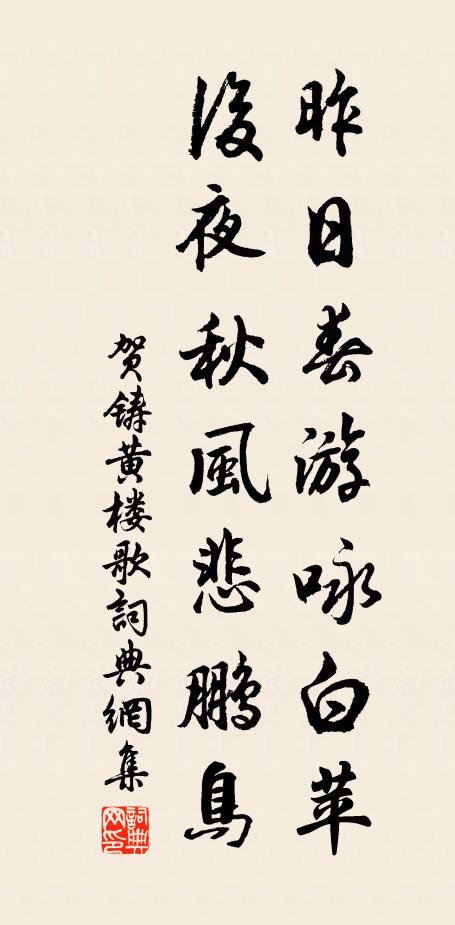 昨日春游咏白苹
後夜秋風悲鵬鳥
贺鑄黄楼歌詞典網集
詞典
网印